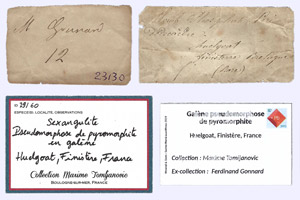 M Gonnard
12
23130
Huelgoat
Finistère
N° 29/60
ESPECE(S), LOCALITE, OBSERVATIONS
Sexangulite
Pseudomorphose de pyromorphite
en galène
Huelgoat, Finistère, France
Collection Maxime Tomljanovic
BOULOGNE-SUR-MER, FRANCE
Galène pseudomorphose
de pyromorphite
Huelgoat, Finistère, France
Collection : Maxime Tomljanovic
Ex-collection : Ferdinand Gonnard